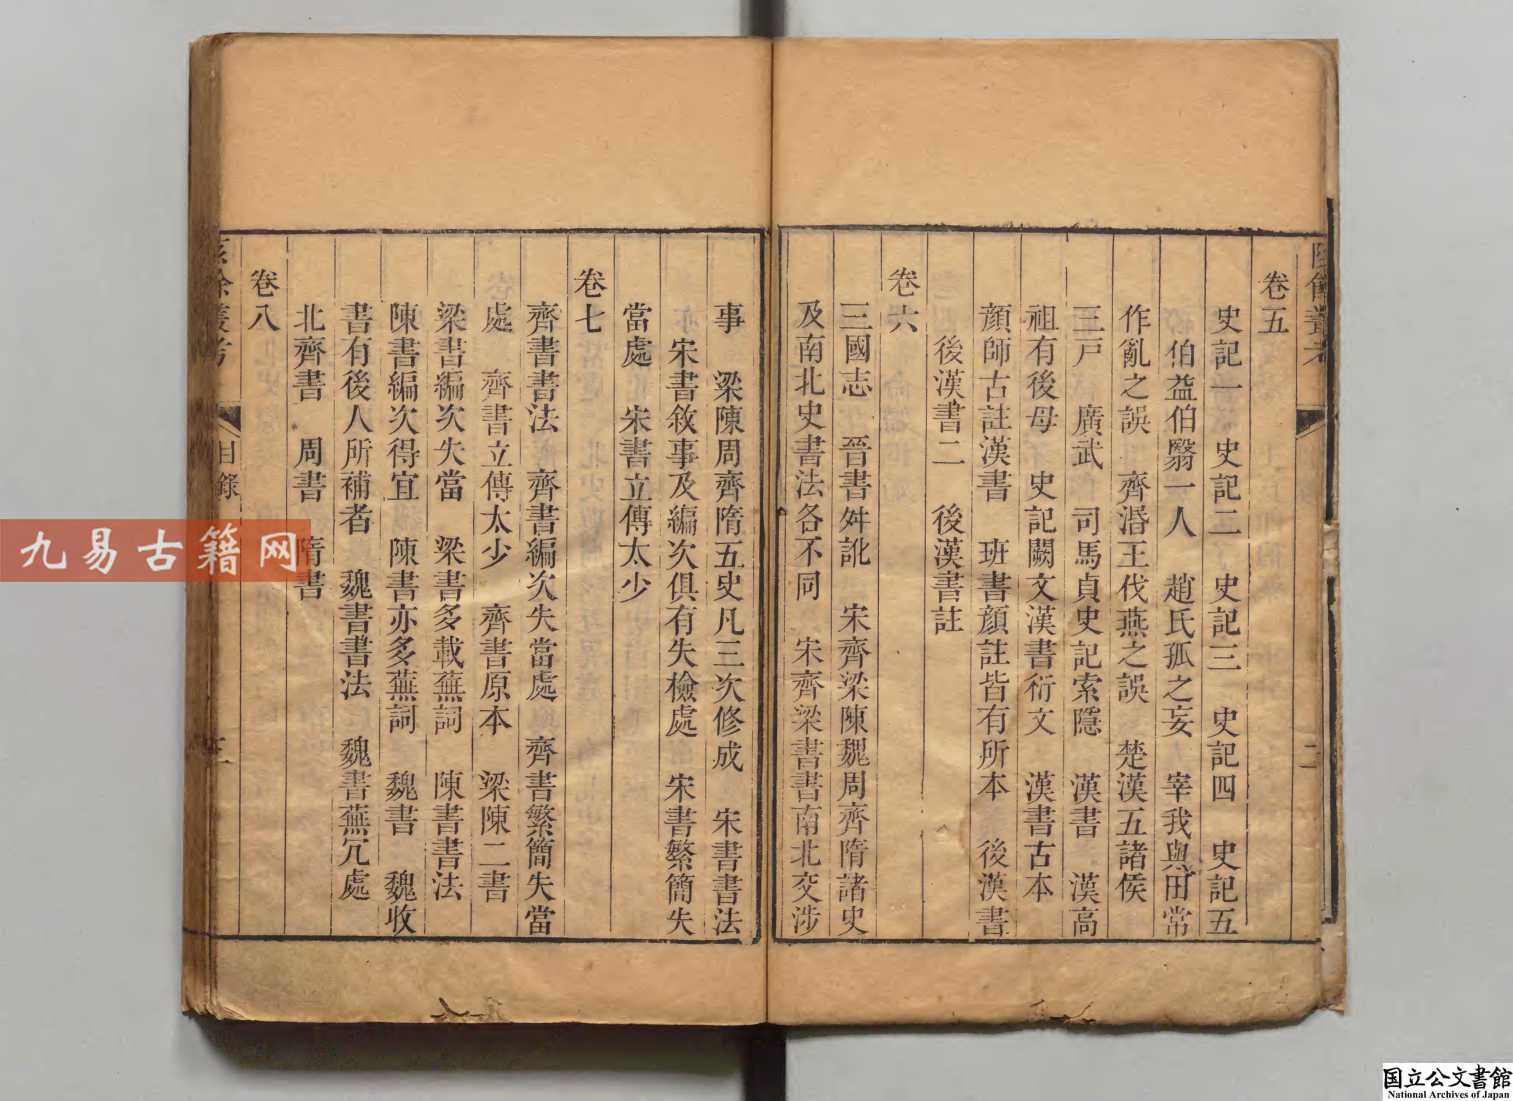 陔餘叢考
二
卷五
史記一　史記二　史記三　史記四　史記五
伯益伯翳一人　趙氏孤之妄　宰我與田常
作亂之誤　齊湣王伐燕之誤　楚漢五諸侯
三戸　廣武　司馬貞史記索隱　漢書　漢高
祖有後母　史記闕文漢書衍文　漢書古本
顔師古註漢書　班書顔註皆有所本　後漢書
後漢書二　後漢書註
卷六
三國志　晉書舛訛　宋齊梁陳魏周齊隋諸史
及南北史書法各不同　宋齊梁書書南北交涉
事　梁陳周齊隋五史凡三次修成　宋書書法
宋書敘事及編次俱有失檢處　宋書繁簡失
當處　宋書立傳太少
卷七
齊書書法　齊書編次失當處　齊書繁簡失當
處　齊書立傳太少　齊書原本　梁陳二書
梁書編次失當　梁書多載蕪詞　陳書書法
陳書編次得宜　陳書亦多蕪詞　魏書　魏收
書有後人所補者　魏書書法　魏書蕪冗處
北齊書　周書　隋書
卷八
陔餘叢考
目錄
九易古籍网
国立公文書館
National Archives of Japan